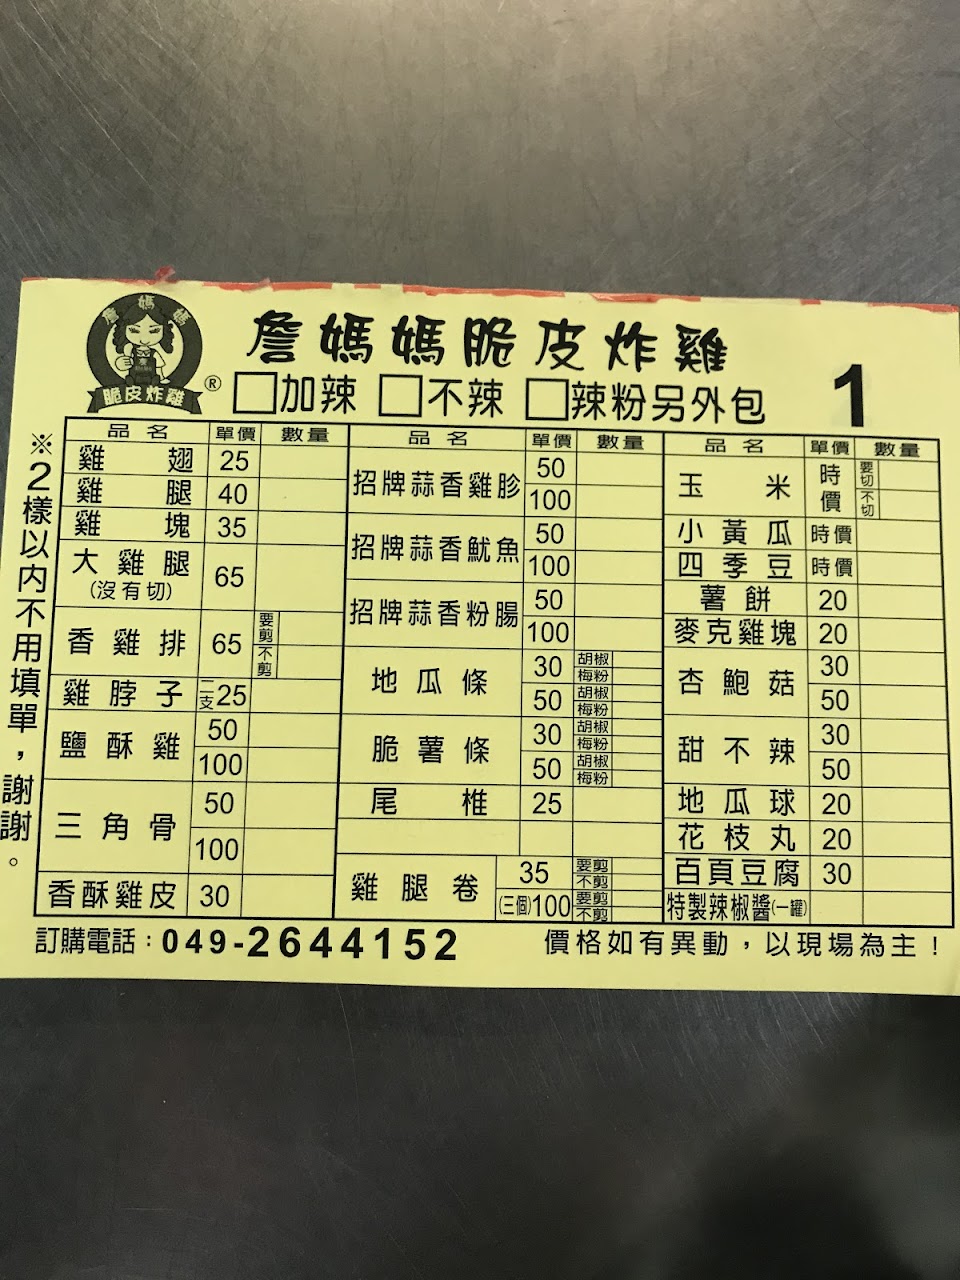 詹媽媽
脆皮炸雞
®
詹媽媽脆皮炸雞
加辣 不辣 辣粉另外包
1
※2樣以內不用填單，謝謝。
品名 單價 數量
雞翅 25
雞腿 40
雞塊 35
大雞腿 65
(沒有切)
香雞排 65 要剪 不剪
雞脖子 二支25
鹽酥雞 50
100
三角骨 50
100
香酥雞皮 30
品名 單價 數量
招牌蒜香雞胗 50
100
招牌蒜香魷魚 50
100
招牌蒜香粉腸 50
100
地瓜條 30 胡椒 梅粉
50 胡椒 梅粉
脆薯條 30 胡椒 梅粉
50 胡椒 梅粉
尾椎 25
雞腿卷 35 要剪 不剪
(三個)100 要剪 不剪
品名 單價 數量
玉米 時價 要切 不切
小黃瓜 時價
四季豆 時價
薯餅 20
麥克雞塊 20
杏鮑菇 30
50
甜不辣 30
50
地瓜球 20
花枝丸 20
百頁豆腐 30
特製辣椒醬(一罐)
訂購電話：049-2644152
價格如有異動，以現場為主！